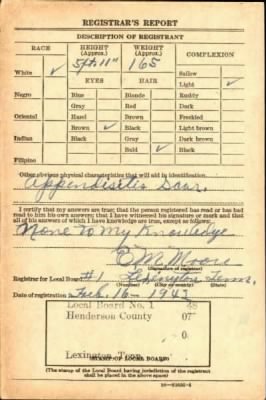 REGISTRAR'S REPORT
DESCRIPTION OF REGISTRANT
RACE
HEIGHT (Approx.)
WEIGHT (Approx.)
COMPLEXION
White ✓
5ft 11"
165
Sallow
EYES
HAIR
Light ✓
Negro
Blue
Blonde
Ruddy
Gray
Red
Dark
Oriental
Hazel
Brown
Freckled
Brown ✓
Black
Light brown
Indian
Black
Gray
Dark brown
Bald ✓
Black
Filipino
Other obvious physical characteristics that will aid in identification
Appendisitis Scar.
I certify that my answers are true; that the person registered has read or has had
read to him his own answers; that I have witnessed his signature or mark and that
all of his answers of which I have knowledge are true, except as follows:
None to My Knowledge
B M Moore
(Signature of registrar)
Registrar for Local Board #1 Lexington Tenn.
Date of registration Feb. 16 - 1942
Local Board No. 1 45
Henderson County 07
0
Lexington, Tenn.
(STAMP OF LOCAL BOARD)
(The stamp of the Local Board having jurisdiction of the registrant
shall be placed in the above space)